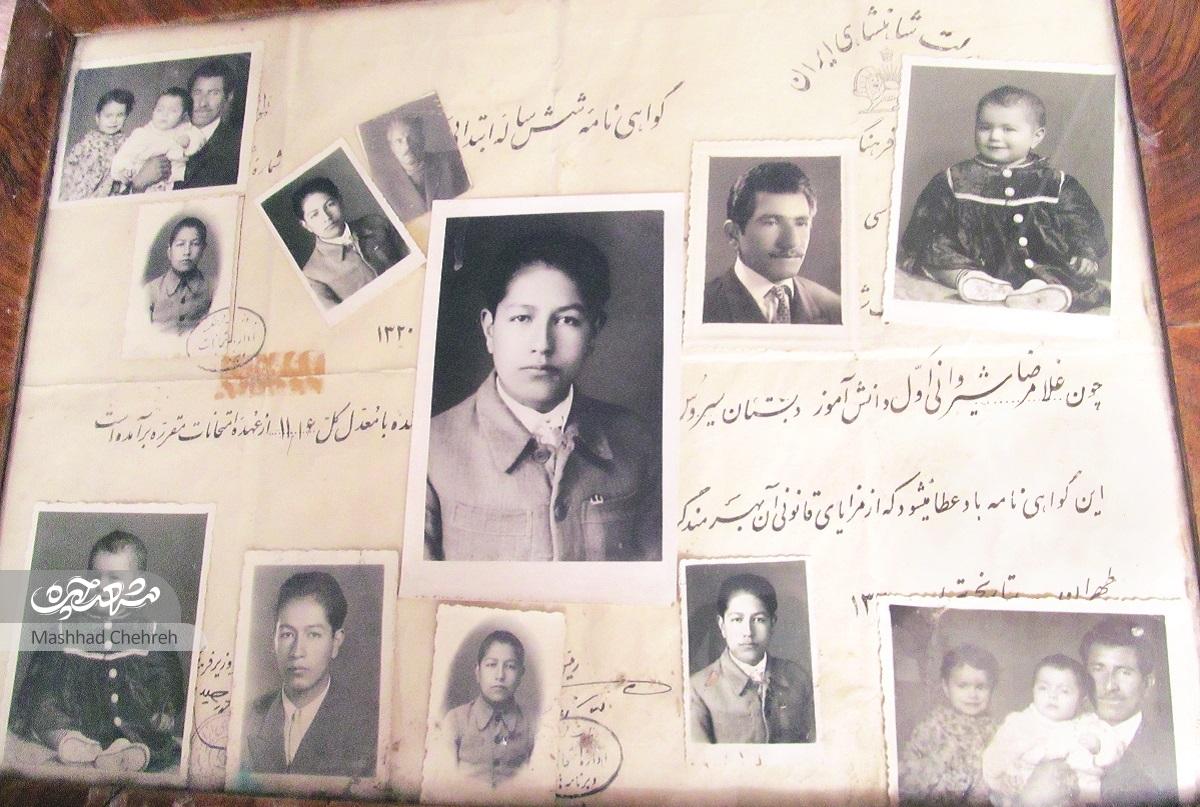 شاهنشاهی ایران
گواهی نامه شش ساله ابتدائی
فرهنگ
شماره
۱۳۲۰
چون غلامرضا شیروانی اول دانش آموز دبستان سیروس
شده با معدل کل ۱۱/۱۶ از عهده امتحانات مقرره برآمده است
این گواهی نامه باو عطا میشود که از مزایای قانونی آن بهره مند گر
طهران بتاریخ
وزیر فرهنگ
رئیس
مشهد چهره
Mashhad Chehreh